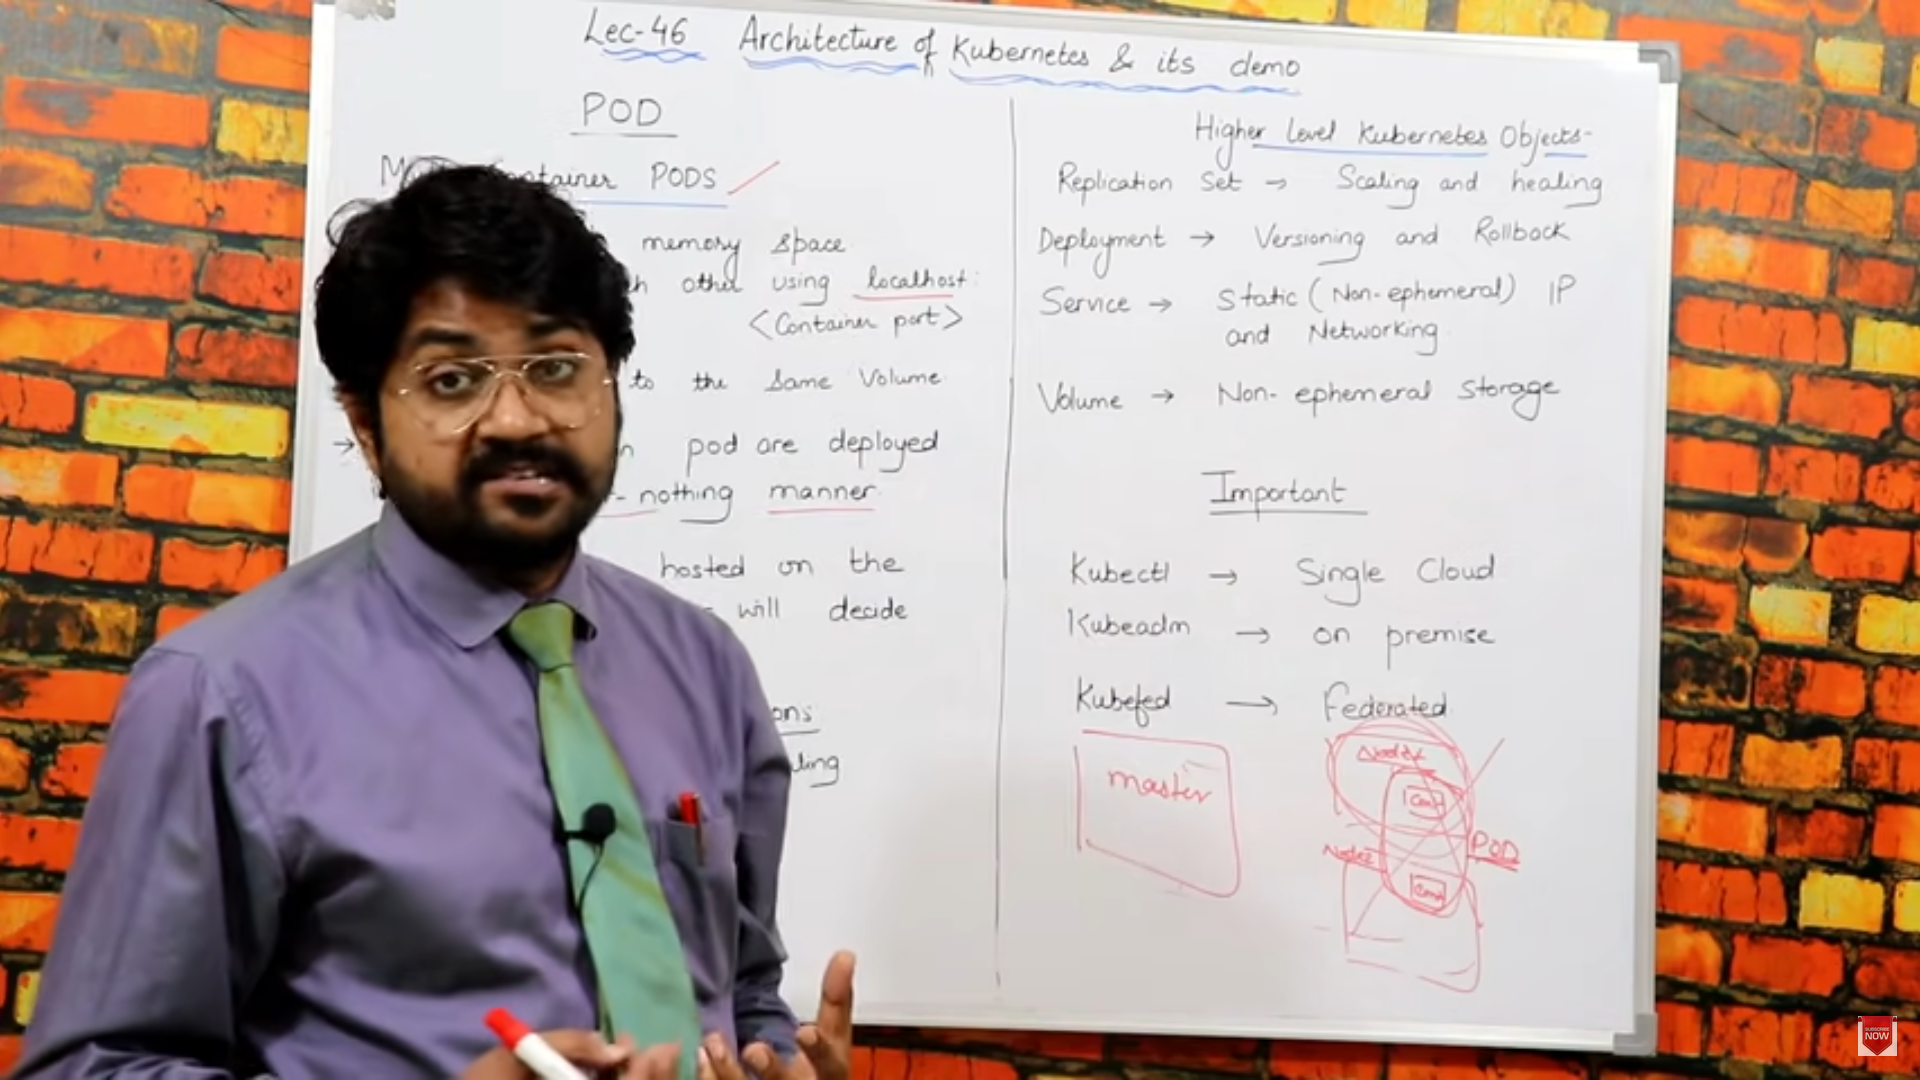 Lec-46 Architecture of Kubernetes & its demo
POD
Container PODS
memory space
other using localhost:
<Container port>
to the same Volume
→ pod are deployed
- nothing manner.
hosted on the
will decide
Higher Level Kubernetes Objects-
Replication Set → Scaling and healing
Deployment → Versioning and Rollback
Service → Static (Non-ephemeral) IP
and Networking.
Volume → Non-ephemeral Storage
Important
Kubectl → Single Cloud
Kubeadm → on premise
Kubefed → Federated
master
POD
Cont
SUBSCRIBE
NOW